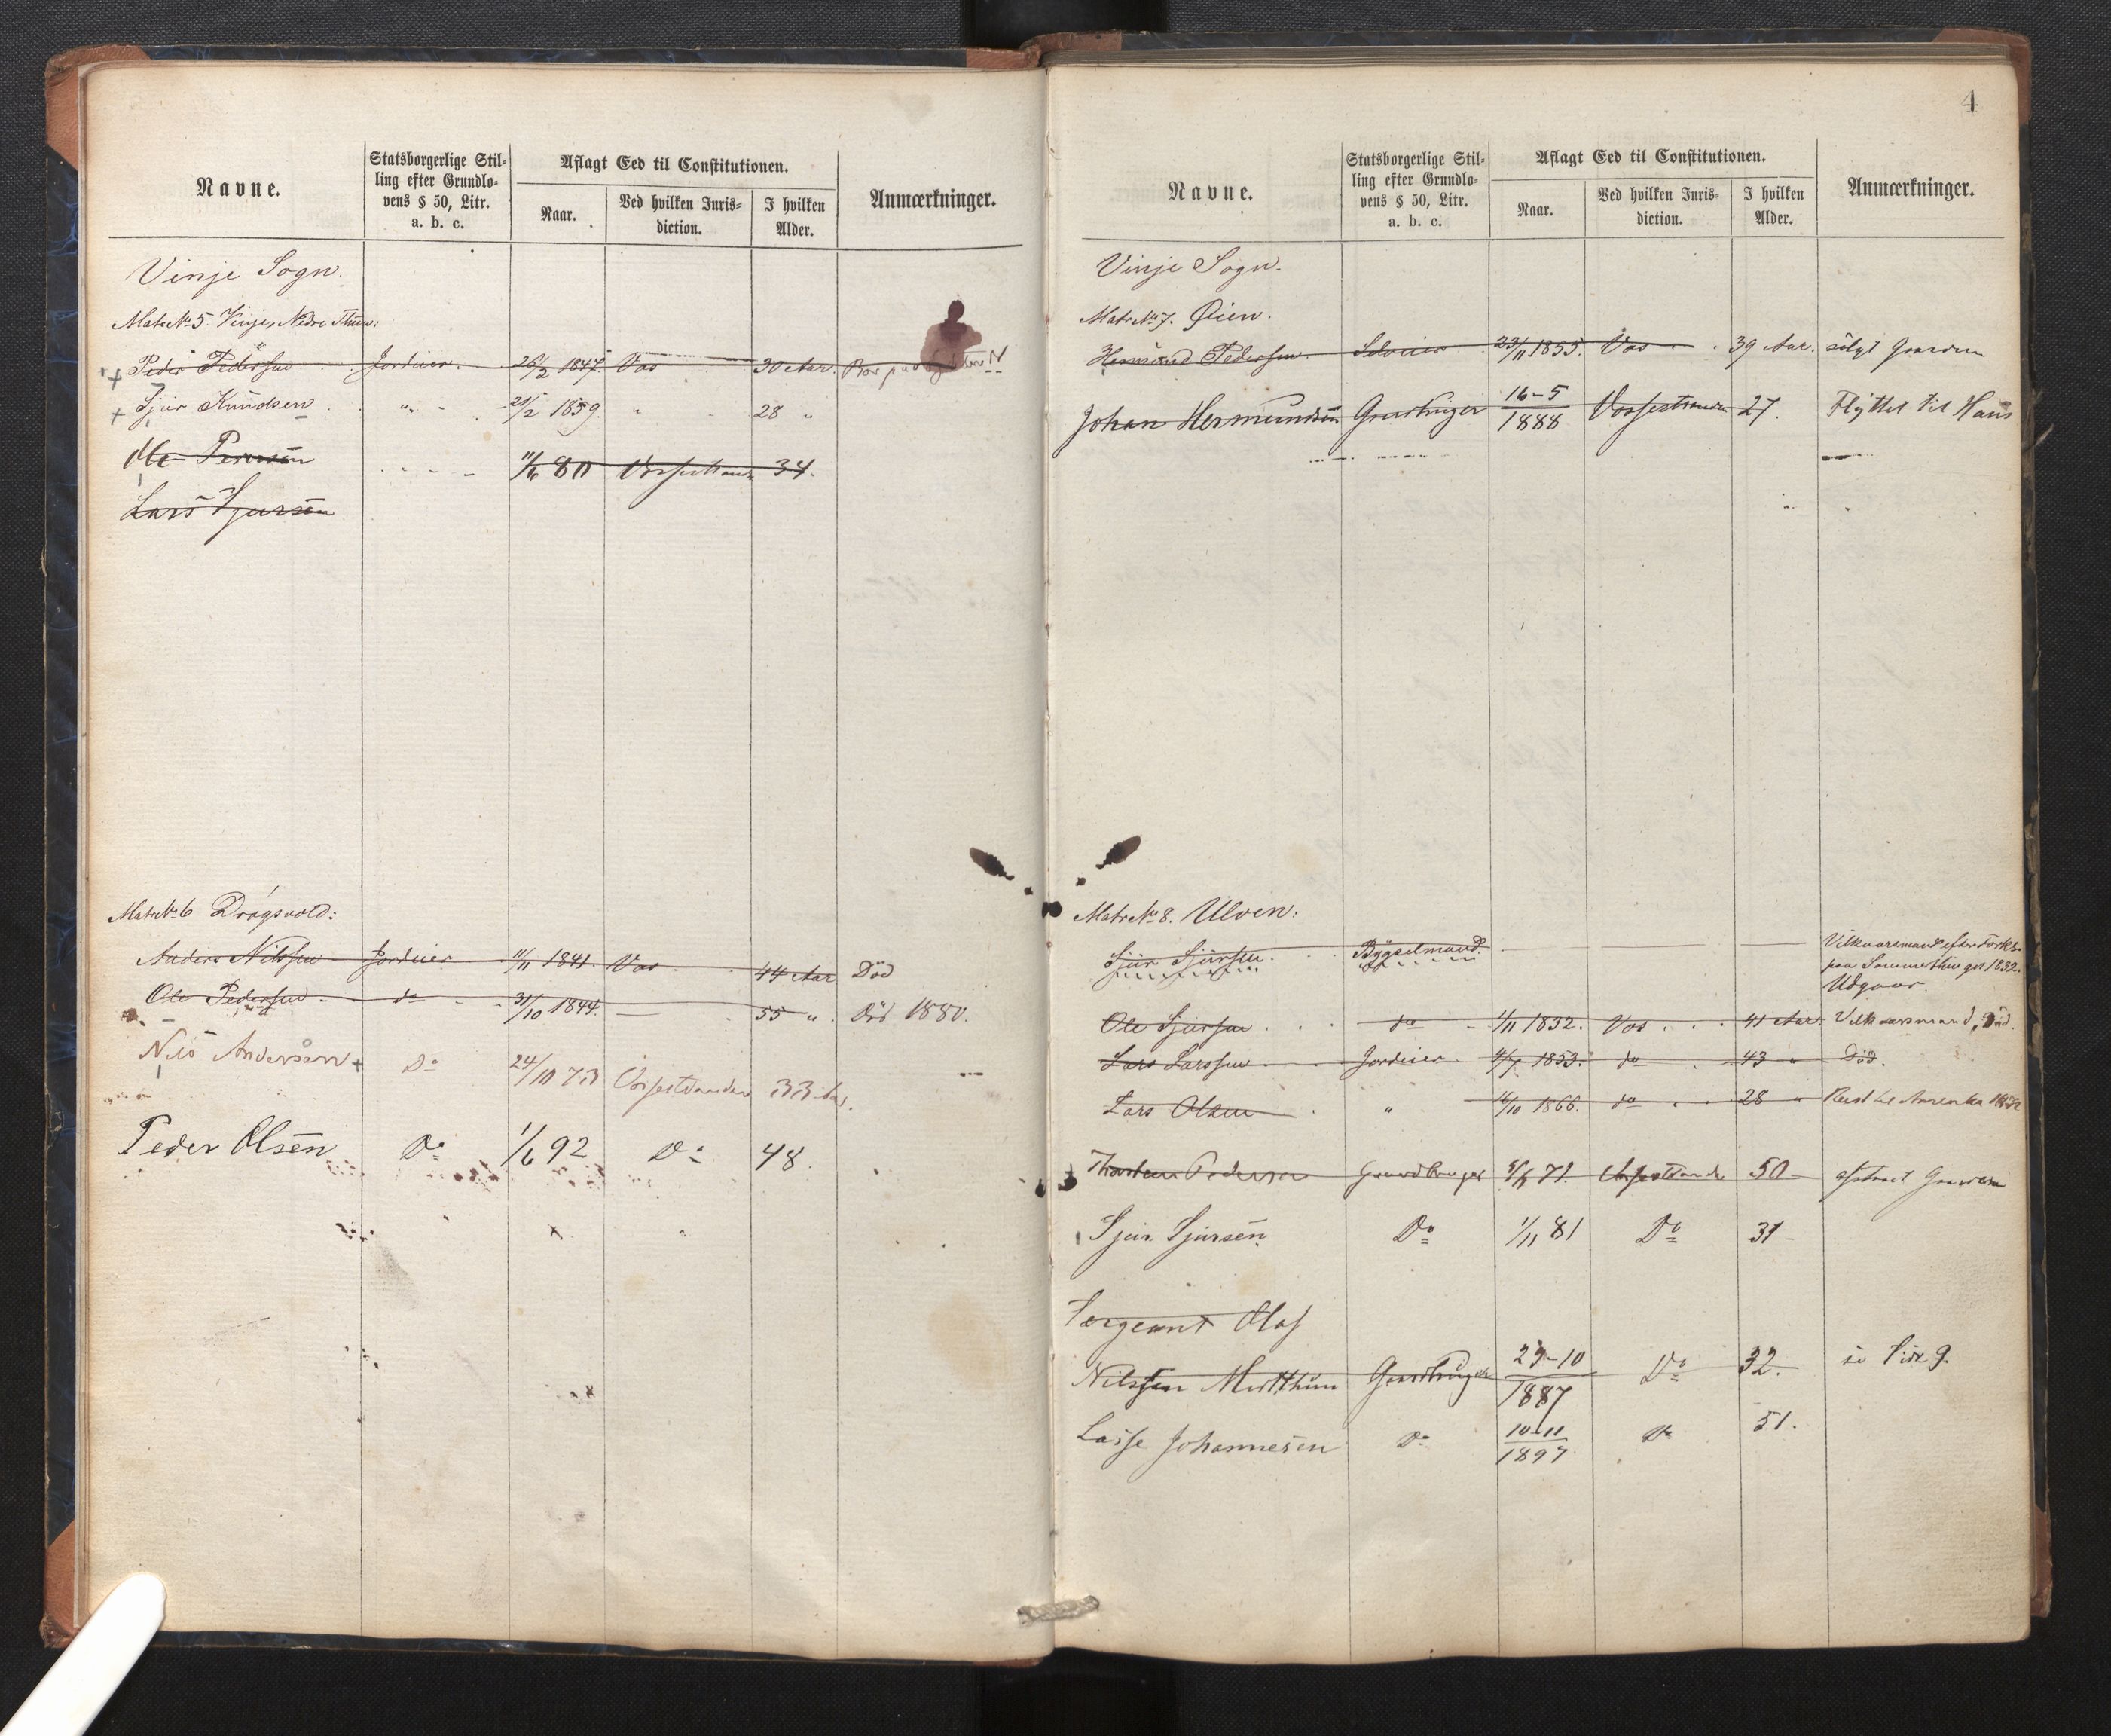 Navne.
Statsborgerlige Stil-
ling efter Grundlo-
vens § 50, Litr.
a. b. c.
Aflagt Eed til Constitutionen.
Naar.
Ved hvilken Juris-
diction.
I hvilken
Alder.
Anmærkninger.
Vinje Sogn.
Matr No 5. Vinje, Nedre Thun:
Peder Pedersen Jordeier 26/2 1847. Vos 30 Aar. Bor paa
+ Sjur Knudsen " 21/2 1859. " 28 "
Ole Pedersen 11/6 80 Vossestranden 34.
Lars Sjursen
Matr No 6 Drøgsvold:
Anders Nilssen Jordeier 11/11 1841. Vos 44 Aar Död
Ole Pedersen do 31/10 1844. 55 " Död 1880.
Nils Andersen + Do 24/10 73 Vossestranden 33 Aar.
Peder Olsen Do 1/6 92 Do 48.
4
Navne.
Statsborgerlige Stil-
ling efter Grundlo-
vens § 50, Litr.
a. b. c.
Aflagt Eed til Constitutionen.
Naar.
Ved hvilken Juris-
diction.
I hvilken
Alder.
Anmærkninger.
Vinje Sogn.
Matr No 7. Øien.
Hermund Pedersen Selveier 23/11 1855. Vos 39 Aar. solgt Gaarden
Johan Hermundsen Gaardbruger 16-5 1888 Vossestranden 27. Flyttet til Haus
Matr No 8. Ulven:
Sjur Sjursen Bygselmand Vilkaarsmand efter
paa Sommerthinget 1832.
Udgaar.
Ole Sjursen do 1/11 1832. Vos 41 Aar Vilkaarsmand, Död.
Lars Larssen Jordeier 4/7 1853. do 43 " Död.
Lars Olsen " 16/10 1866. do 28 " Reist til Amerika
Thorsten Pedersen Gaardbruger 71. Vossestranden 50 Gaarden
Sjur Sjursen Do 1/11 81 Do 31
Sergeant Olaf
Nilssen Midtthun Gaardbruger 29-10 1887 Do 32. se Side 9.
Lasse Johannesen Do 10-11 1897 Do 51.